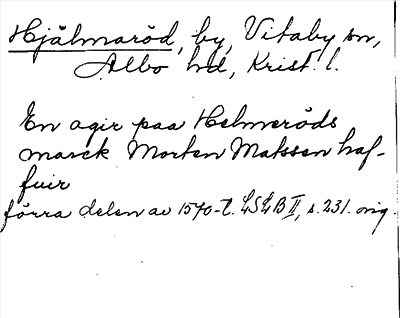 Hjälmaröd, by, Vitaby sn,
Albo hd, Krist. l.
En agir paa Helmerøds
marck Morten Matssen haf-
fuir
förra delen av 1570-t. LSLB II, s. 231. orig.